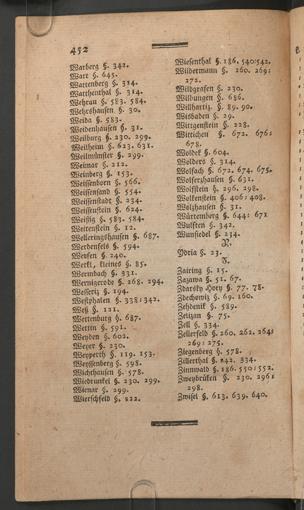 452
Warberg §. 342.
Wart §. 645.
Wartenberg §. 314.
Wartthenthal §. 314.
Wehrau §. 583. 584.
Wehrshausen §. 30.
Weida §. 583.
Weidenhausen §. 31.
Weilburg §. 230. 299.
Weilheim §. 623. 631.
Weilmünster §. 299.
Weimar §. 212.
Weinberg §. 153.
Weissenborn §. 566.
Weissensand §. 554.
Weissenstadt §. 234.
Weissenstein §. 624.
Weissig §. 583. 584.
Weitenstein §. 12.
Welleringshausen §. 687.
Werdenfels §. 594.
Werfen §. 240.
Werkl, kleines §. 85.
Wermbach §. 331.
Wernigerode §. 268. 294.
Wesseritz §. 194.
Westphalen §. 338:342.
Weß §. 121.
Wetterburg §. 687.
Wettin §. 591.
Weyden §. 602.
Weyer §. 230.
Weyperth §. 119. 153.
Weyssenberg §. 598.
Wichthausen §. 578.
Wiedrunkel §. 230. 299.
Wienar §. 299.
Wierschfeld §. 222.
Wiesenthal §. 186. 540:542.
Wildermann §. 260. 269:
272.
Wildgrafen §. 230.
Wildungen §. 686.
Willhartiz. §. 89. 90.
Wisbaden §. 29.
Wittgenstein §. 228.
Wittichen §. 672. 676:
678.
Woldek §. 604.
Wolders §. 314.
Wolfach §. 672. 674. 675.
Wolfershausen §. 631.
Wolfstein §. 296. 298.
Wolkenstein §. 406:408.
Wolzhausen §. 31.
Würtemberg §. 644: 671
Wulften §. 342.
Wunsiedel §. 234.
Y.
Ydria §. 23.
Z.
Zairing §. 15.
Zazawa §. 51. 67.
Zdarsky Hory §. 77. 78.
Zbechowiz §. 69. 160.
Zehdenik §. 589.
Zeizum §. 75.
Zell §. 334.
Zellerfeld §. 260. 262. 264:
269: 275.
Ziegenberg §. 578.
Zillerthal §. 242. 334.
Zinnwald §. 186. 550:552.
Zweybrüken §. 230. 296:
298.
Zwisel §. 613. 639. 640.